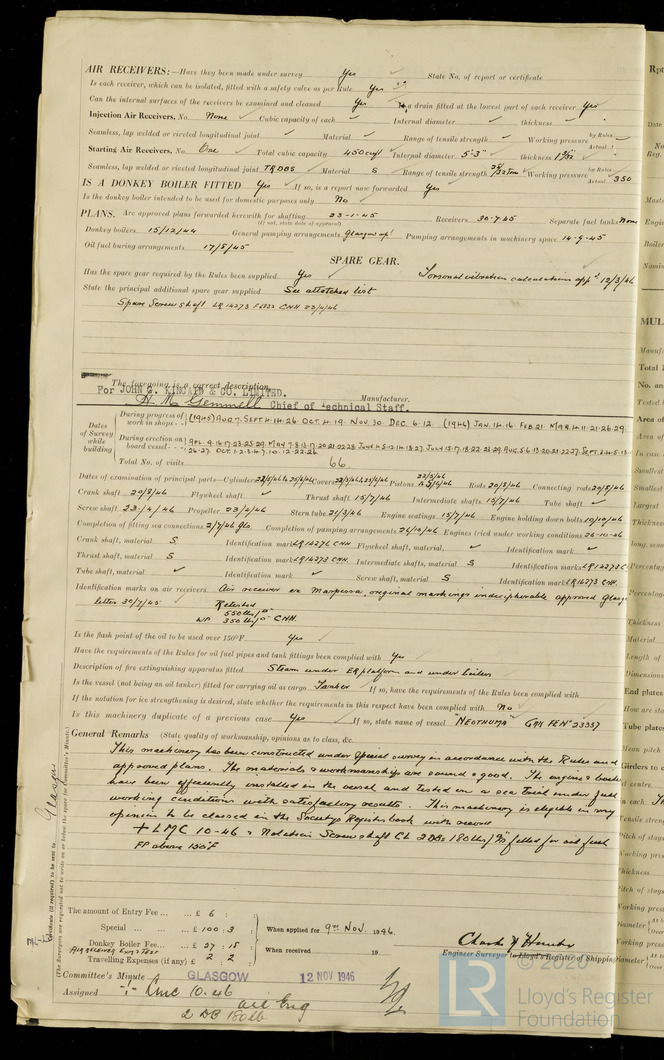 AIR RECEIVERS:—Have they been made under survey Yes State No. of report or certificate
Is each receiver, which can be isolated, fitted with a safety valve as per Rule Yes
Can the internal surfaces of the receivers be examined and cleaned Yes Is a drain fitted at the lowest part of each receiver Yes
Injection Air Receivers, No. None Cubic capacity of each Internal diameter thickness
Seamless, lap welded or riveted longitudinal joint Material Range of tensile strength Working pressure by Rules Actual
Starting Air Receivers, No. One Total cubic capacity 450 cuft Internal diameter 5'-3" thickness 1 9/32"
Seamless, lap welded or riveted longitudinal joint TRDBS Material S Range of tensile strength 28/32 Tons Working pressure by Rules Actual 350
IS A DONKEY BOILER FITTED Yes If so, is a report now forwarded Yes
Is the donkey boiler intended to be used for domestic purposes only No
PLANS. Are approved plans forwarded herewith for shafting 23-1-45 Receivers 30-7-45 Separate fuel tanks None
(If not, state date of approval)
Donkey boilers 15/12/44 General pumping arrangements Glasgow Pumping arrangements in machinery space 14-9-45
Oil fuel burning arrangements 17/5/45
SPARE GEAR.
Has the spare gear required by the Rules been supplied Yes Torsional vibration calculations appd 12/3/46
State the principal additional spare gear supplied See attatched list
Spare Screwshaft LR 14273 CNH 23/4/46
The foregoing is a correct description,
For JOHN G. KINCAID & CO. LIMITED.
A. M. Gemmell Chief of Technical Staff. Manufacturer.
Dates of Survey while building
During progress of work in shops - - (1945) AUG 7. SEPT 11-14-26 OCT 4. 19. NOV 30 DEC 6. 12. (1946) JAN. 14. 16. FEB 21. MAR. 4. 11-21-26-29.
During erection on board vessel - - -
Total No. of visits 66
Dates of examination of principal parts—Cylinders Covers Pistons Rods 20/8/46 Connecting rods 20/8/46
Crank shaft 20/8/46 Flywheel shaft Thrust shaft 15/7/46 Intermediate shafts 15/7/46 Tube shaft
Screw shaft 23/4/46 Propeller 23/4/46 Stern tube 21/3/46 Engine seatings 15/7/46 Engine holding down bolts 10/10/46
Completion of fitting sea connections 2/7/46 Completion of pumping arrangements 26/10/46 Engines tried under working conditions 26-10-46
Crank shaft, material S Identification mark LR 14276 CNH Flywheel shaft, material Identification mark
Thrust shaft, material S Identification mark LR 14273 CNH. Intermediate shafts, material S Identification marks LR 14273 C
Tube shaft, material Identification mark Screw shaft, material S Identification mark LR 14273 CNH.
Identification marks on air receivers Air receiver ex Marpessa, original markings indecipherable approved Glasgow
letter 30/7/45 Retested
550 lbs/□"
WP 350 lbs/□" CNH.
Is the flash point of the oil to be used over 150°F. Yes
Have the requirements of the Rules for oil fuel pipes and tank fittings been complied with Yes
Description of fire extinguishing apparatus fitted Steam under ER platform and under boilers
Is the vessel (not being an oil tanker) fitted for carrying oil as cargo Tanker If so, have the requirements of the Rules been complied with
If the notation for ice strengthening is desired, state whether the requirements in this respect have been complied with No
Is this machinery duplicate of a previous case Yes If so, state name of vessel "NEOTHUMA" GRK FE No 23337
General Remarks (State quality of workmanship, opinions as to class, &c.
This machinery has been constructed under Special survey in accordance with the Rules and
approved plans. The materials & workmanship are sound & good. The engines & boilers
have been efficiently installed in the vessel and tested on a sea trial under full
working conditions with satisfactory results. This machinery is eligible in my
opinion to be classed in the Societys Register book with record
+ LMC 10-46 & Notation Screwshaft CL 2 DBs 180 lbs/□" fitted for oil fuel
FP above 150°F
Glasgow
Certificate (if required) to be sent to
(The Surveyors are requested not to write on or below the space for Committee's Minute.)
The amount of Entry Fee ... £ 6 :
Special ... ... £ 100 : 3 When applied for 9TH NOV. 1946.
Donkey Boiler Fee... ... £ 27 : 15
Travelling Expenses (if any) £ 2 : 2 When received 19
Engineer Surveyor to Lloyd's Register of Shipping
Committee's Minute GLASGOW 12 NOV 1946
Assigned + LMC 10.46
oil Eng
2 DB 180 lb
© 2020
LR
Lloyd's Register
Foundation